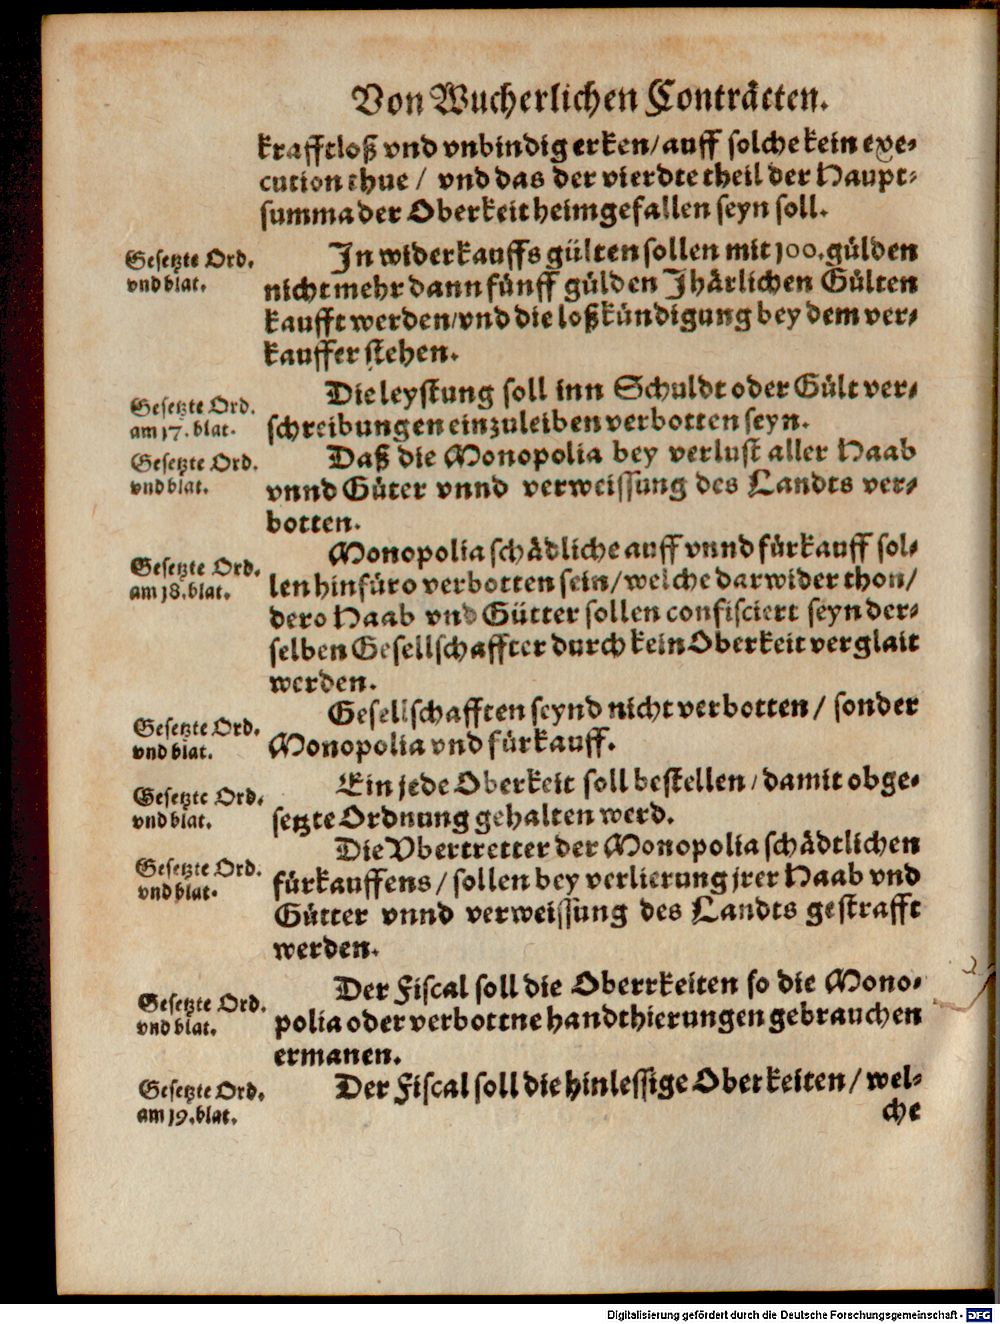 Von Wucherlichen Conträcten.
krafftloß vnd vnbindig erken/auff solche kein exe-
cution thue / vnd das der vierdte theil der Haupt-
summa der Oberkeit heimgefallen seyn soll.
Gesetzte Ord.
vnd blat.
In widerkauffs gülten sollen mit 100. gülden
nicht mehr dann fünff gülden Jhärlichen Gülten
kaufft werden/vnd die loßkündigung bey dem ver-
kauffer stehen.
Gesetzte Ord.
am 17. blat.
Die leystung soll inn Schuldt oder Gült ver-
schreibungen einzuleiben verbotten seyn.
Gesetzte Ord.
vnd blat.
Daß die Monopolia bey verlust aller Haab
vnnd Güter vnnd verweissung des Landts ver-
botten.
Gesetzte Ord.
am 18. blat.
Monopolia schädliche auff vnnd fürkauff sol-
len hinfüro verbotten sein/welche darwider thon/
dero Haab vnd Gütter sollen confisciert seyn der-
selben Gesellschaffter durch kein Oberkeit verglait
werden.
Gesetzte Ord.
vnd blat.
Gesellschafften seynd nicht verbotten / sonder
Monopolia vnd fürkauff.
Gesetzte Ord.
vnd blat.
Ein jede Oberkeit soll bestellen / damit obge-
setzte Ordnung gehalten werd.
Gesetzte Ord.
vnd blat.
Die Vbertretter der Monopolia schädtlichen
fürkauffens / sollen bey verlierung jrer Haab vnd
Gütter vnnd verweissung des Landts gestrafft
werden.
Gesetzte Ord.
vnd blat.
Der Fiscal soll die Oberrkeiten so die Mono-
polia oder verbottne handthierungen gebrauchen
ermanen.
Gesetzte Ord.
am 19. blat.
Der Fiscal soll die hinlessige Oberkeiten / wel-
che
Digitalisierung gefördert durch die Deutsche Forschungsgemeinschaft - DFG